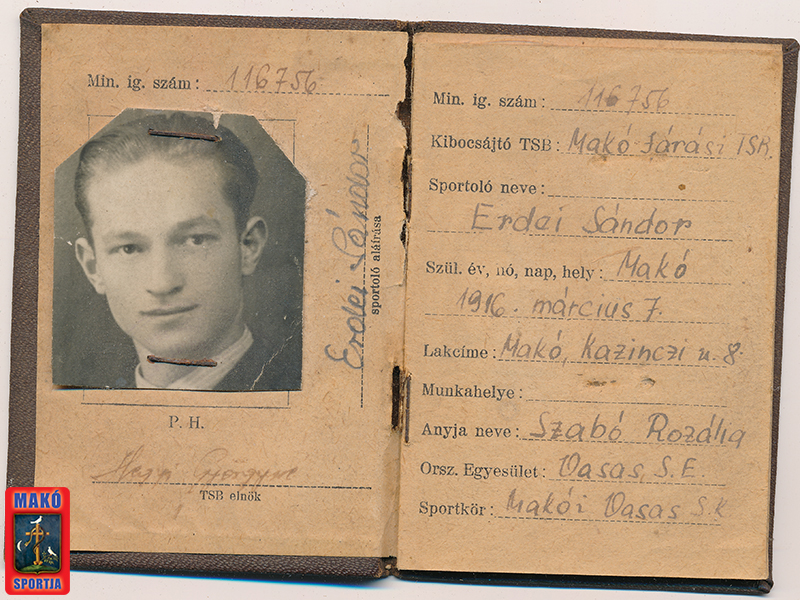 Min. ig. szám: 116756
Erdei Sándor
sportoló aláírása
P. H.
TSB elnök
MAKÓ
SPORTJA
Min. ig. szám: 116756
Kibocsájtó TSB: Makó Járási TSB.
Sportoló neve:
Erdei Sándor
Szül. év, nó, nap, hely: Makó
1916. március 7.
Lakcíme: Makó, Kazinczi u. 8.
Munkahelye:
Anyja neve: Szabó Rozália
Orsz. Egyesület: Vasas S.E.
Sportkör: Makói Vasas S.K